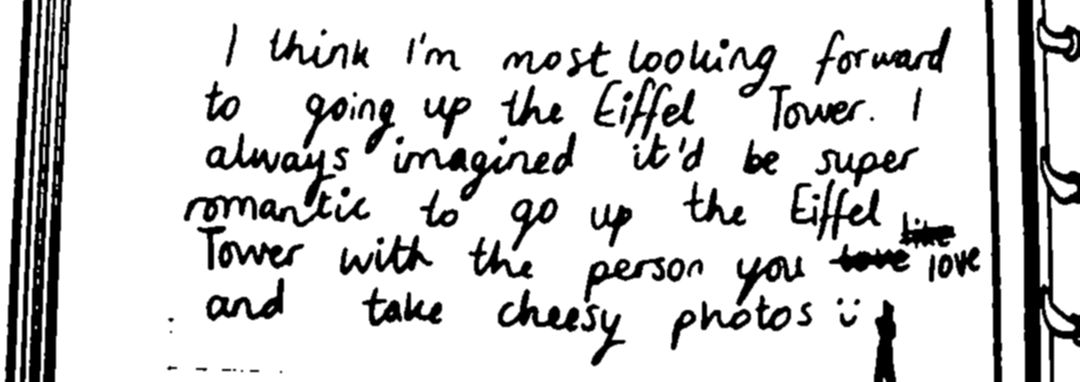 I think I'm most looking forward
to going up the Eiffel Tower. I
always imagined it'd be super
romantic to go up the Eiffel
Tower with the person you love like love
and take cheesy photos :)